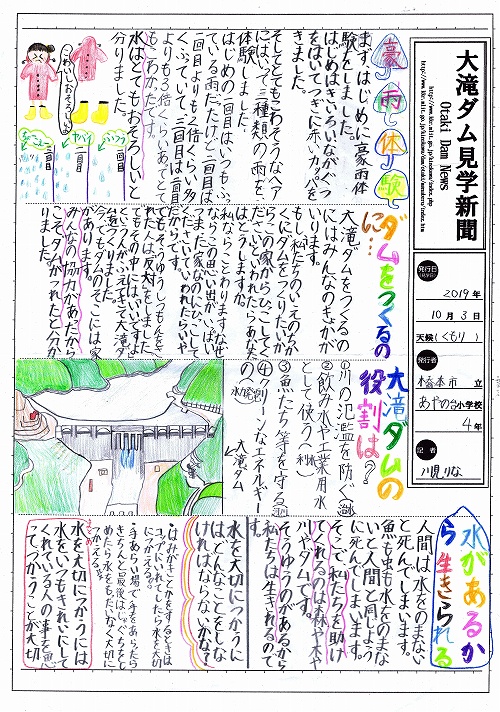 大滝ダム見学新聞
Otaki Dam News
発行日
2019年
10月3日
天候(くもり)
発行者
橋本市 立
あやの台小学校
4年
記者
豪雨体験
まずはじめに豪雨体
験をしました。
はじめはきいろいながぐつ
をはいてつぎに赤いカッパを
そしてとてもこわそうなへや
にはいって三種類の雨を
体験しました。
はじめの一回目はいつもふっ
ている雨だけど二回目は
一回目よりも2倍くらい多
くふっていて三回目は二回目
よりも3倍くらいあてとて
もこわかったです。
水はとてもおそろしいと
分りました。
こわいしおそろしいよ
一回目
二回目
三回目
ダムをつくるの
に…
大滝ダムをつくるの
にはみんなのきょかが
いります。
もし、私たちのいえのちか
くにダムをつくりたいか
らこの家からひっこしてく
ださいといわれたらあなた
はどうしますか。
私ならことわります。なぜ
ならこの思い出がいっぱい
つまった家なのにひっこして
くださいといわれたらいや
だからです。
れた人は反対をしました。
でもその中にはいいですよ
今でもダムのそこには家
があります。
みんなの協力があったから
こそダムがつくれたと分か
りました。
大滝ダムの
役割は？
①川の氾濫を防ぐ
②飲み水や工業用水
として使う
③魚たち等を守る
④クリーンなエネルギー
大滝ダム
水があるか
ら生きられる
人間は水をのまない
と死んでしまいます。
魚も虫も水をのまな
いと人間と同じよう
に死んでしまいます。
そこで私たちを助け
てくれるのは森や木や
川やダムです。
そうゆうのがあるから
私たちは生きれるので
す。
水を大切につかうに
はどんなことをしな
ければならないかな？
・はみがきとかをするときは
コップにいれてしたら水を大切
につかえるよ。
・手あらい場で手をあらったら
水を大切につかうには
水をいつもきれいにして
くれている人の事を思
ってつかうことが大切